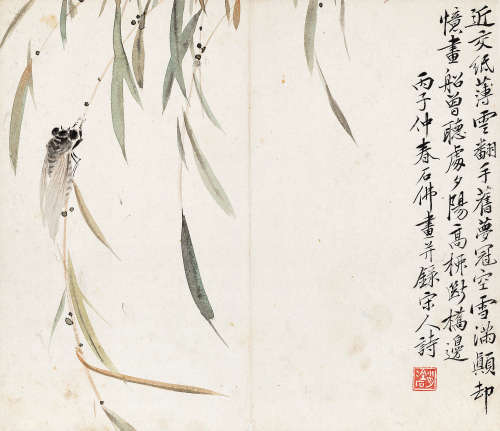 近交紙薄雲翻手舊夢冠空雪滿顛却
憶畫船曾聽處夕陽高柳斷橋邊
丙子仲春石佛畫并錄宋人詩